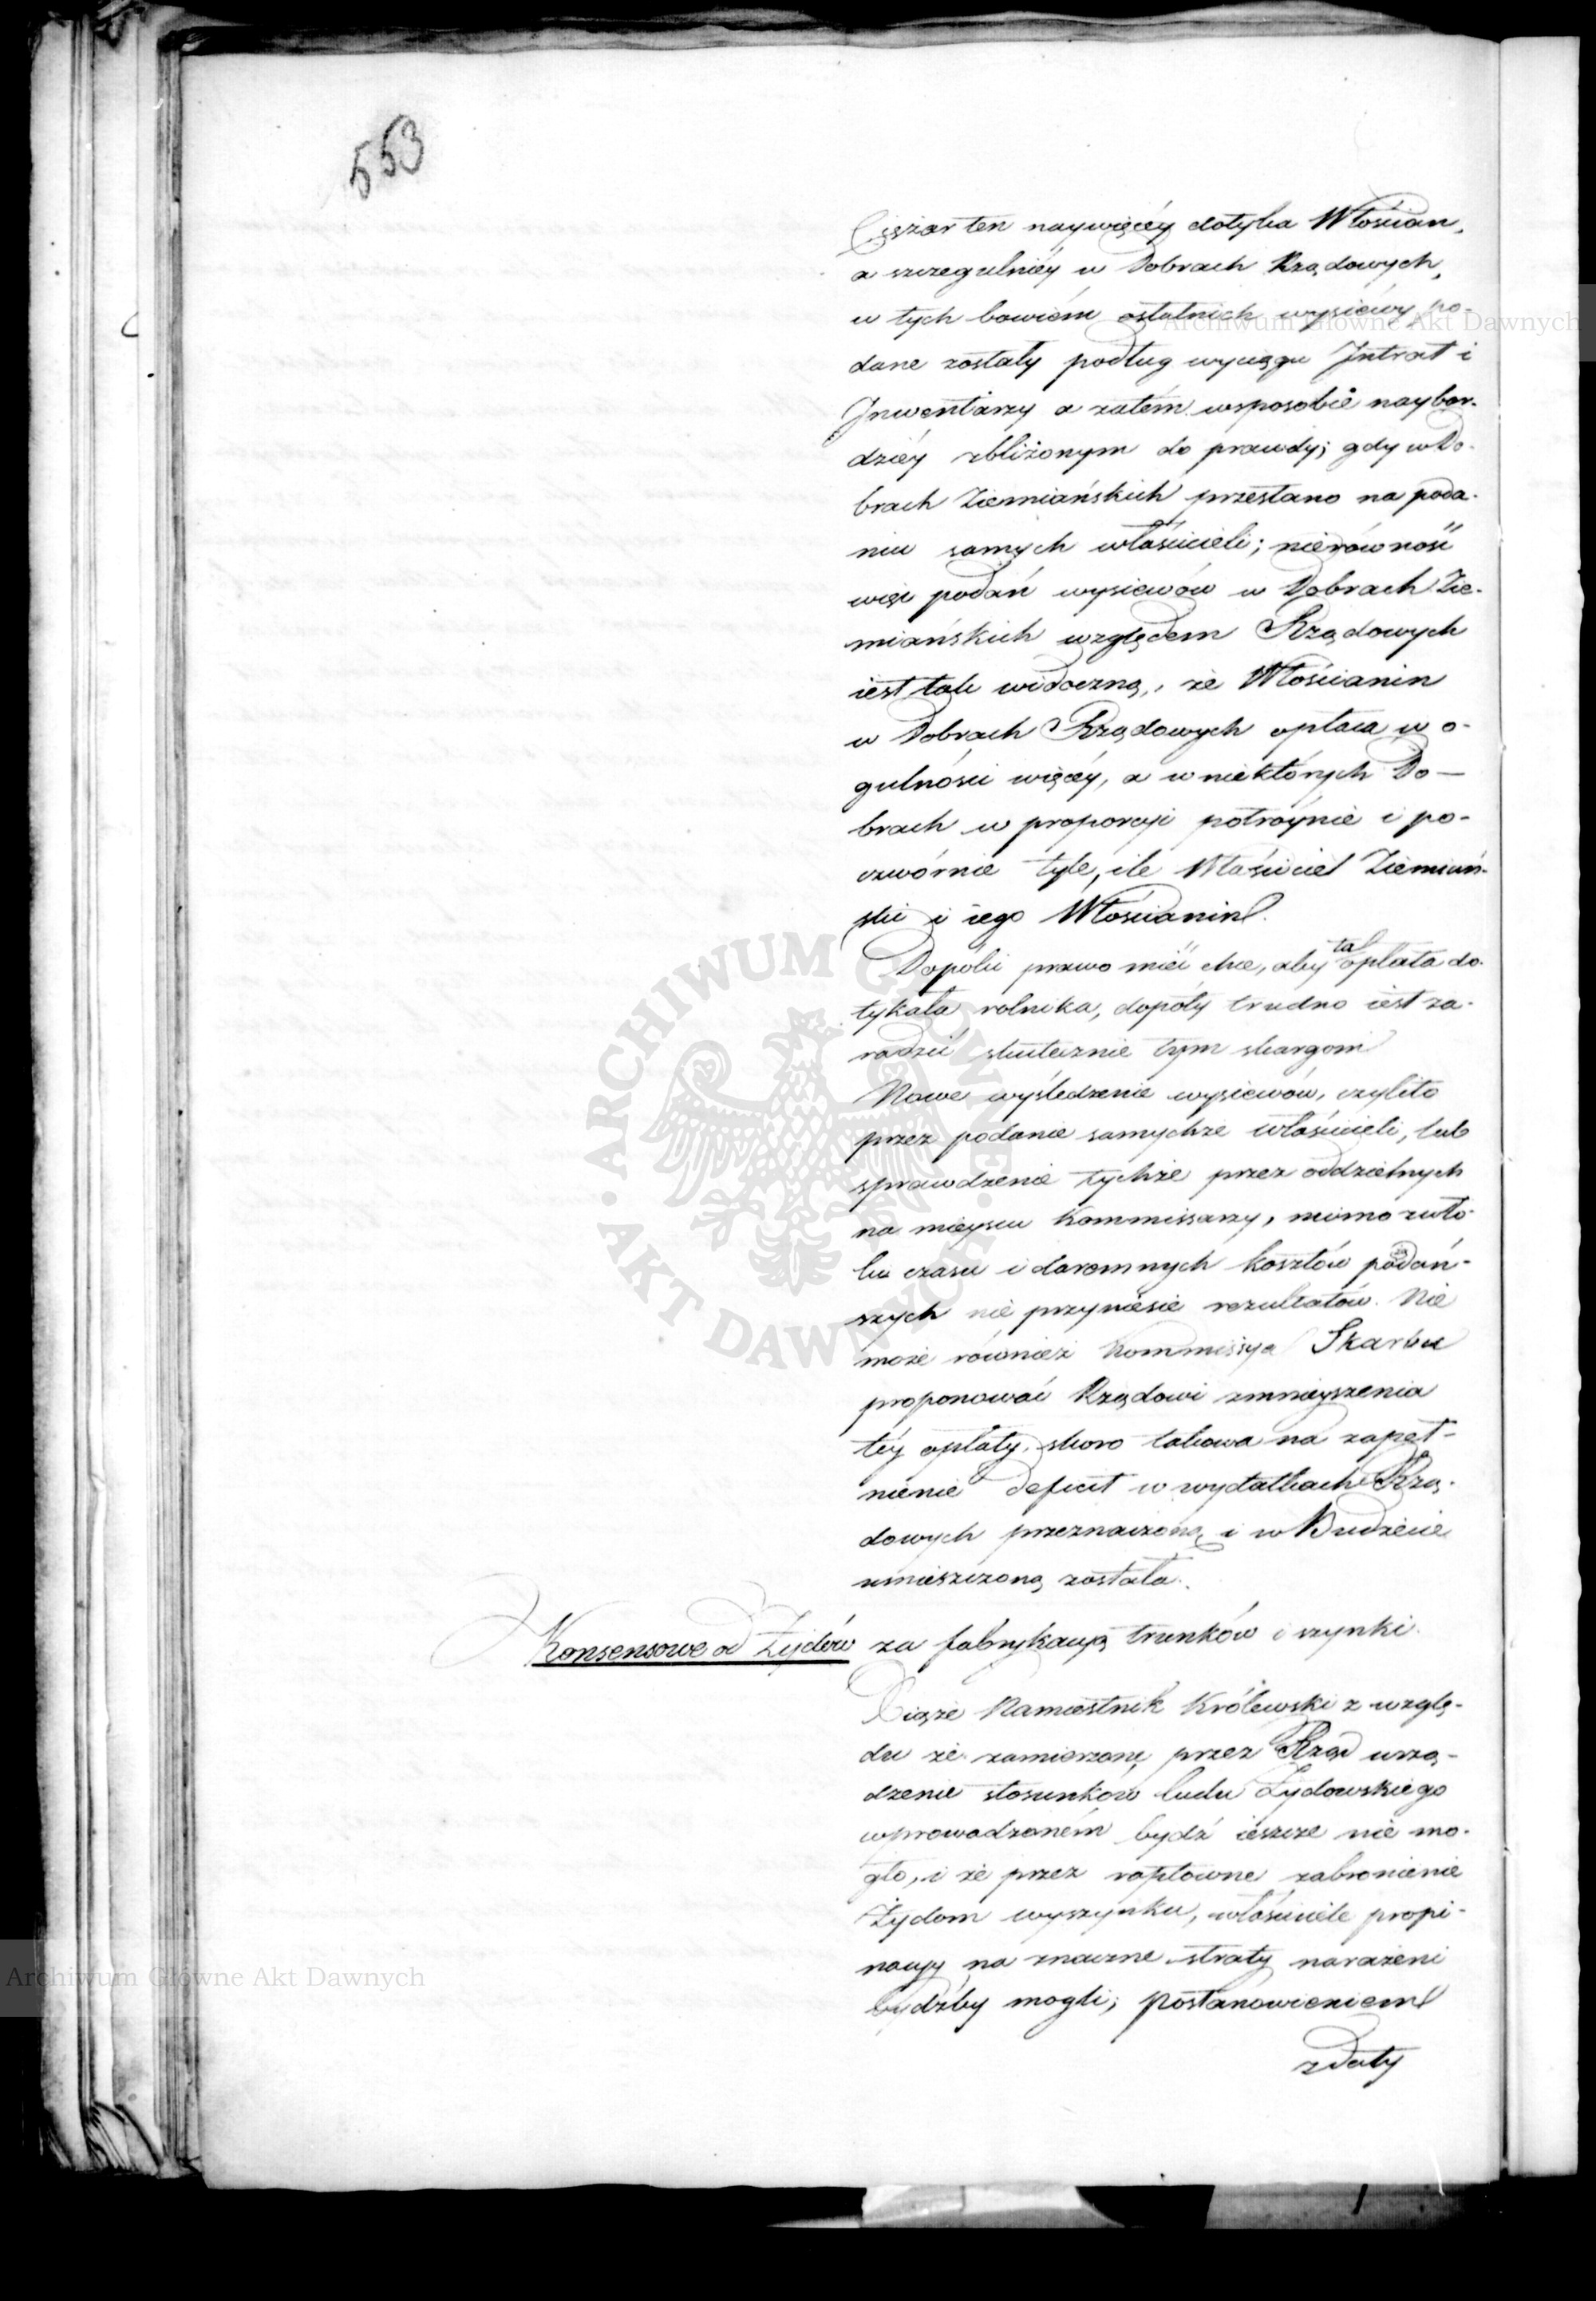 553
Ciężar ten naywięcéy dotyka Włościan,
a szczegulniéy w Dobrach Rządowych,
w tych bowiém ostatnich wysiewy po-
dane zostały podług wyciągu Jntrat i
Jnwentarzy a zatém wsposobie naybar-
dziéy zbliżonym do prawdy; gdy w Do-
brach Ziemiańskich przestano na poda-
niu samych właścicieli; nierówność
więc podań wysiewów w Dobrach Zie-
miańskich względem Rządowych
iest tak widoczną, że Włościanin
w Dobrach Rządowych opłaca w o-
gulności więcéy, a w niektórych Do-
brach w proporcyi potróynie i po-
czwórnie tyle, ile Właściciel Ziemiań-
ski i iego Włościanin.
Dopóki prawo mieć chce, aby ta opłata do-
tykała rolnika, dopóty trudno iest za-
radzić skutecznie tym skargom
Nowe wyśledzenie wysiewów, czylito
przez podanie samychże właścicieli, lub
sprawdzenie tychże przez oddzielnych
na mieyscu Kommissarzy, mimo
czasu i daremnych kosztów
nie przyniesie rezultatów. Nie
może również Kommissya Skarbu
proponować Rządowi zmnieyszenia
téy opłaty, skoro takowa na zapeł-
nienie deficit w wydatkach Rzą-
dowych przeznaczoną i w Budżecie
umieszczoną została.
Konsensowe od Żydów za fabrykacyą trunków i szynki.
Xiąże Namiestnik Królewski z wzglę-
du że zamierzone przez Rząd urzą-
dzenie stosunków ludu Żydowskiego
wprowadzoném bydź ieszcze nie mo-
gło, i że przez raptowne zabronienie
Żydom wyszynku, właściciele propi-
nacyi na znaczne straty narażeni
bydźby mogli; postanowieniem
z daty
Archiwum Główne Akt Dawnych
Archiwum Główne Akt Dawnych
ARCHIWUM GŁÓWNE · AKT DAWNYCH ·